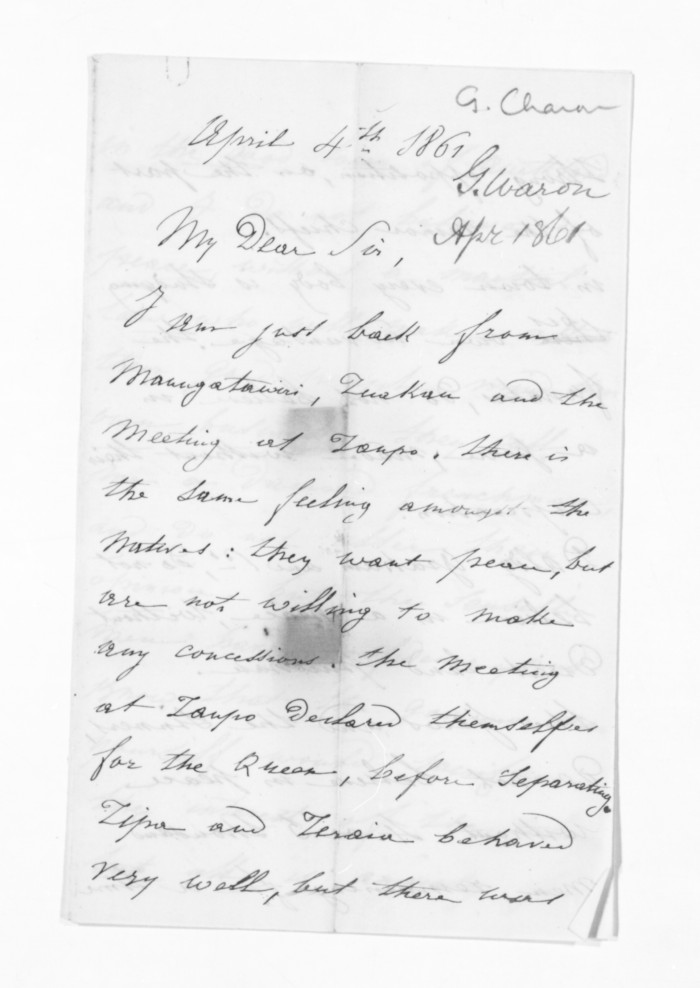 G. Charon
April 4th 1861
G. Waron
Apr 1861
My Dear Sir,
I am just back from
Maungatawiri, Tuakau and the
Meeting at Taupo. there is
the same feeling amongst the
Natives: they want peace, but
are not willing to make
any concessions. the Meeting
at Taupo Declared themselfes
for the Queen, before Separating.
Tipa and Teraia behaved
very well, but there was